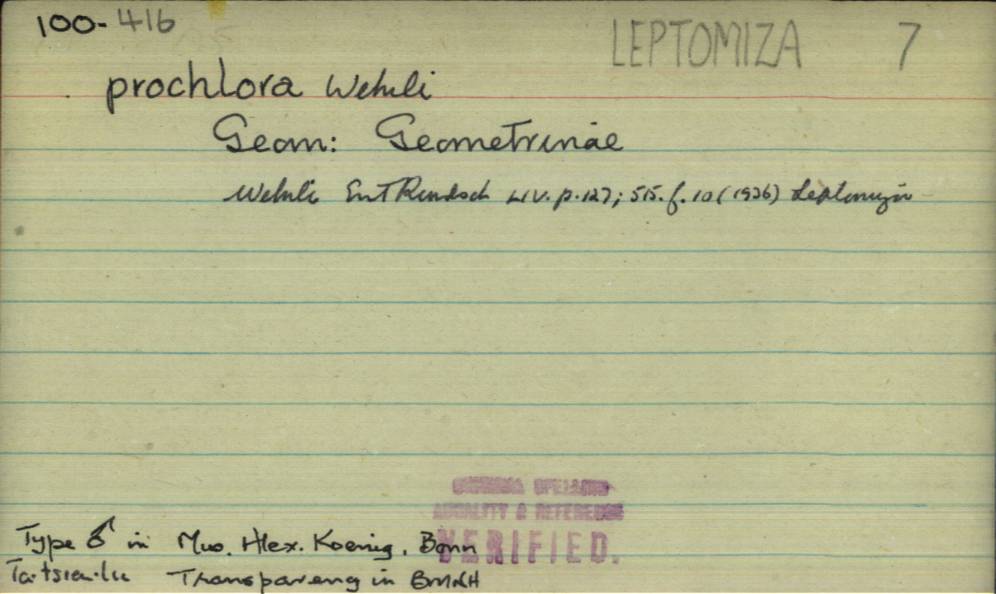 100-416
LEPTOMIZA 7
prochlora Wehrli
Geom: Geometrinae
Wehrli Ent Rundsch LIV. p. 127; 515. f. 10 (1936) Leptomiza
ORIGINAL SPELLING
LOCALITY & REFERENCE
VERIFIED.
Type ♂ in Mus. Alex. Koenig. Bonn
Ta-tsien-lu Transparency in BMNH